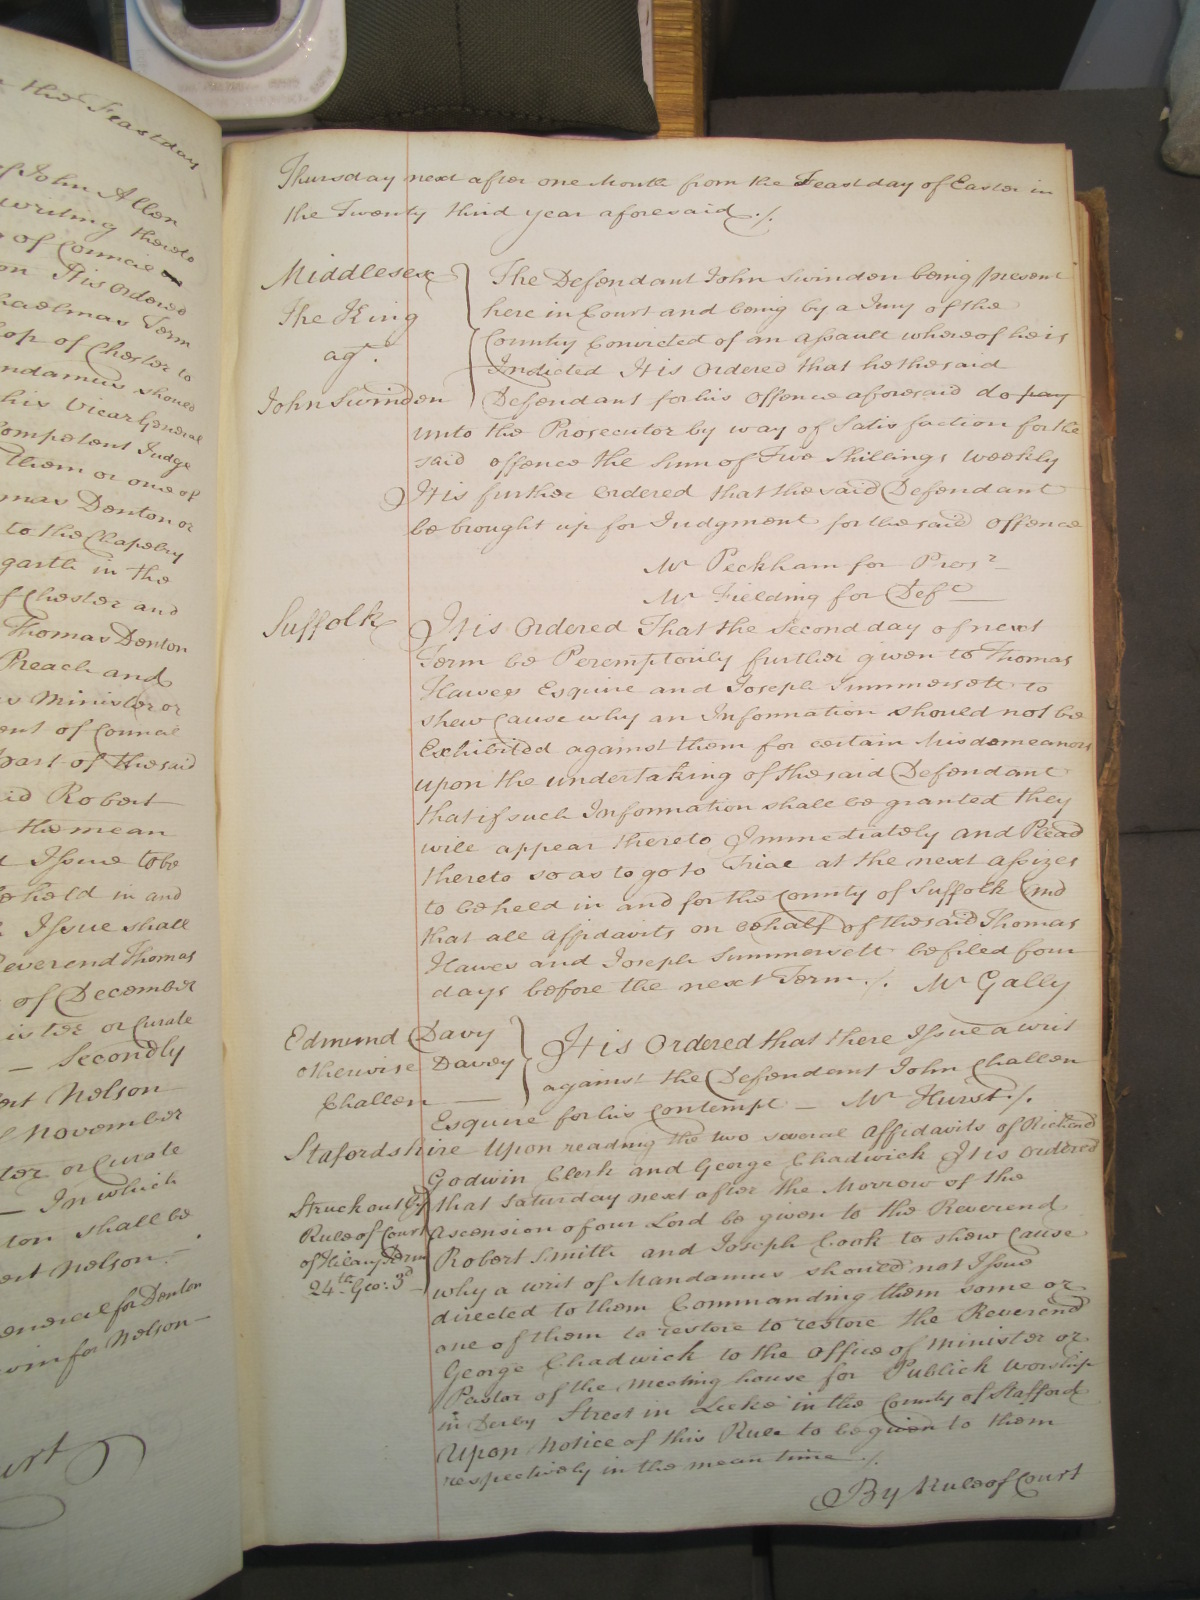 the Feastday
of John Allen
writing thereto
of Councel
on It is ordered
haelmas Term
op of Chester to
ndamus should
his Vicar General
Competent Judge
them or one of
mas Denton or
to the Chapelry
garth in the
f Chester and
Thomas Denton
Preach and
Minister or
ent of Councel
part of the said
id Robert
the mean
Issue to be
held in and
Issue shall
Reverend Thomas
of December
ister or Curate
Secondly
ert Nelson
November
ter or Curate
In which
ton shall be
ert Nelson
eneral for Denton
win for Nelson
urt
Thursday next after one Month from the Feastday of Easter in
the Twenty third year aforesaid ./.
Middlesex
The King
agt.
John Swinden
The Defendant John Swinden being present
here in Court and being by a Jury of the
County Convicted of an assault whereof he is
Indicted It is Ordered that he the said
Defendant for his Offence aforesaid do pay
unto the Prosecutor by way of Satisfaction for the
said offence the Sum of Five Shillings weekly
It is further Ordered that the said Defendant
be brought up for Judgment for the said offence
Mr Peckham for Prosr
Mr Fielding for Deft
Suffolk
It is Ordered That the Second day of next
Term be Peremptorily further given to Thomas
Hawes Esquire and Joseph Summersett to
shew Cause why an Information should not be
Exhibited against them for certain Misdemeanors
upon the undertaking of the said Defendant
that if such Information shall be granted they
will appear thereto Immediately and Plead
thereto so as to go to Trial at the next assizes
to be held in and for the County of Suffolk And
that all affidavits on behalf of the said Thomas
Hawes and Joseph Summersett be filed four
days before the next Term ./. Mr Gally
Edmund Davy
otherwise Davey
Challen
It is Ordered that there Issue a writ
against the Defendant John Challen
Esquire for his Contempt — Mr Hurst ./.
Stafordshire Upon reading the two several affidavits of Richard
Godwin Clerk and George Chadwick It is ordered
Struck out by
Rule of Court
of Hilary Term
24th Geo: 3d
that Saturday next after the Morrow of the
Ascension of our Lord be given to the Reverend
Robert Smith and Joseph Cook to shew Cause
why a writ of Mandamus should not Issue
directed to them Commanding them some or
one of them to restore to restore the Reverend
George Chadwick to the Office of Minister or
Pastor of the Meeting house for Publick Worship
in Derby Street in Leeke in the County of Stafford
Upon Notice of this Rule to be given to them
respectively in the mean time ./.
By Rule of Court